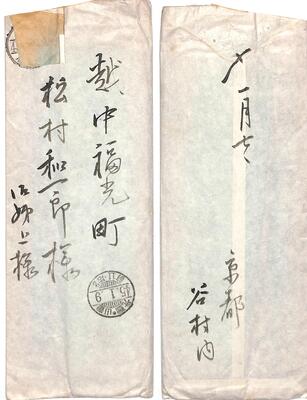 越中福光町
松村和一郎様
御姉上様
〆
一月六
京都
谷村内